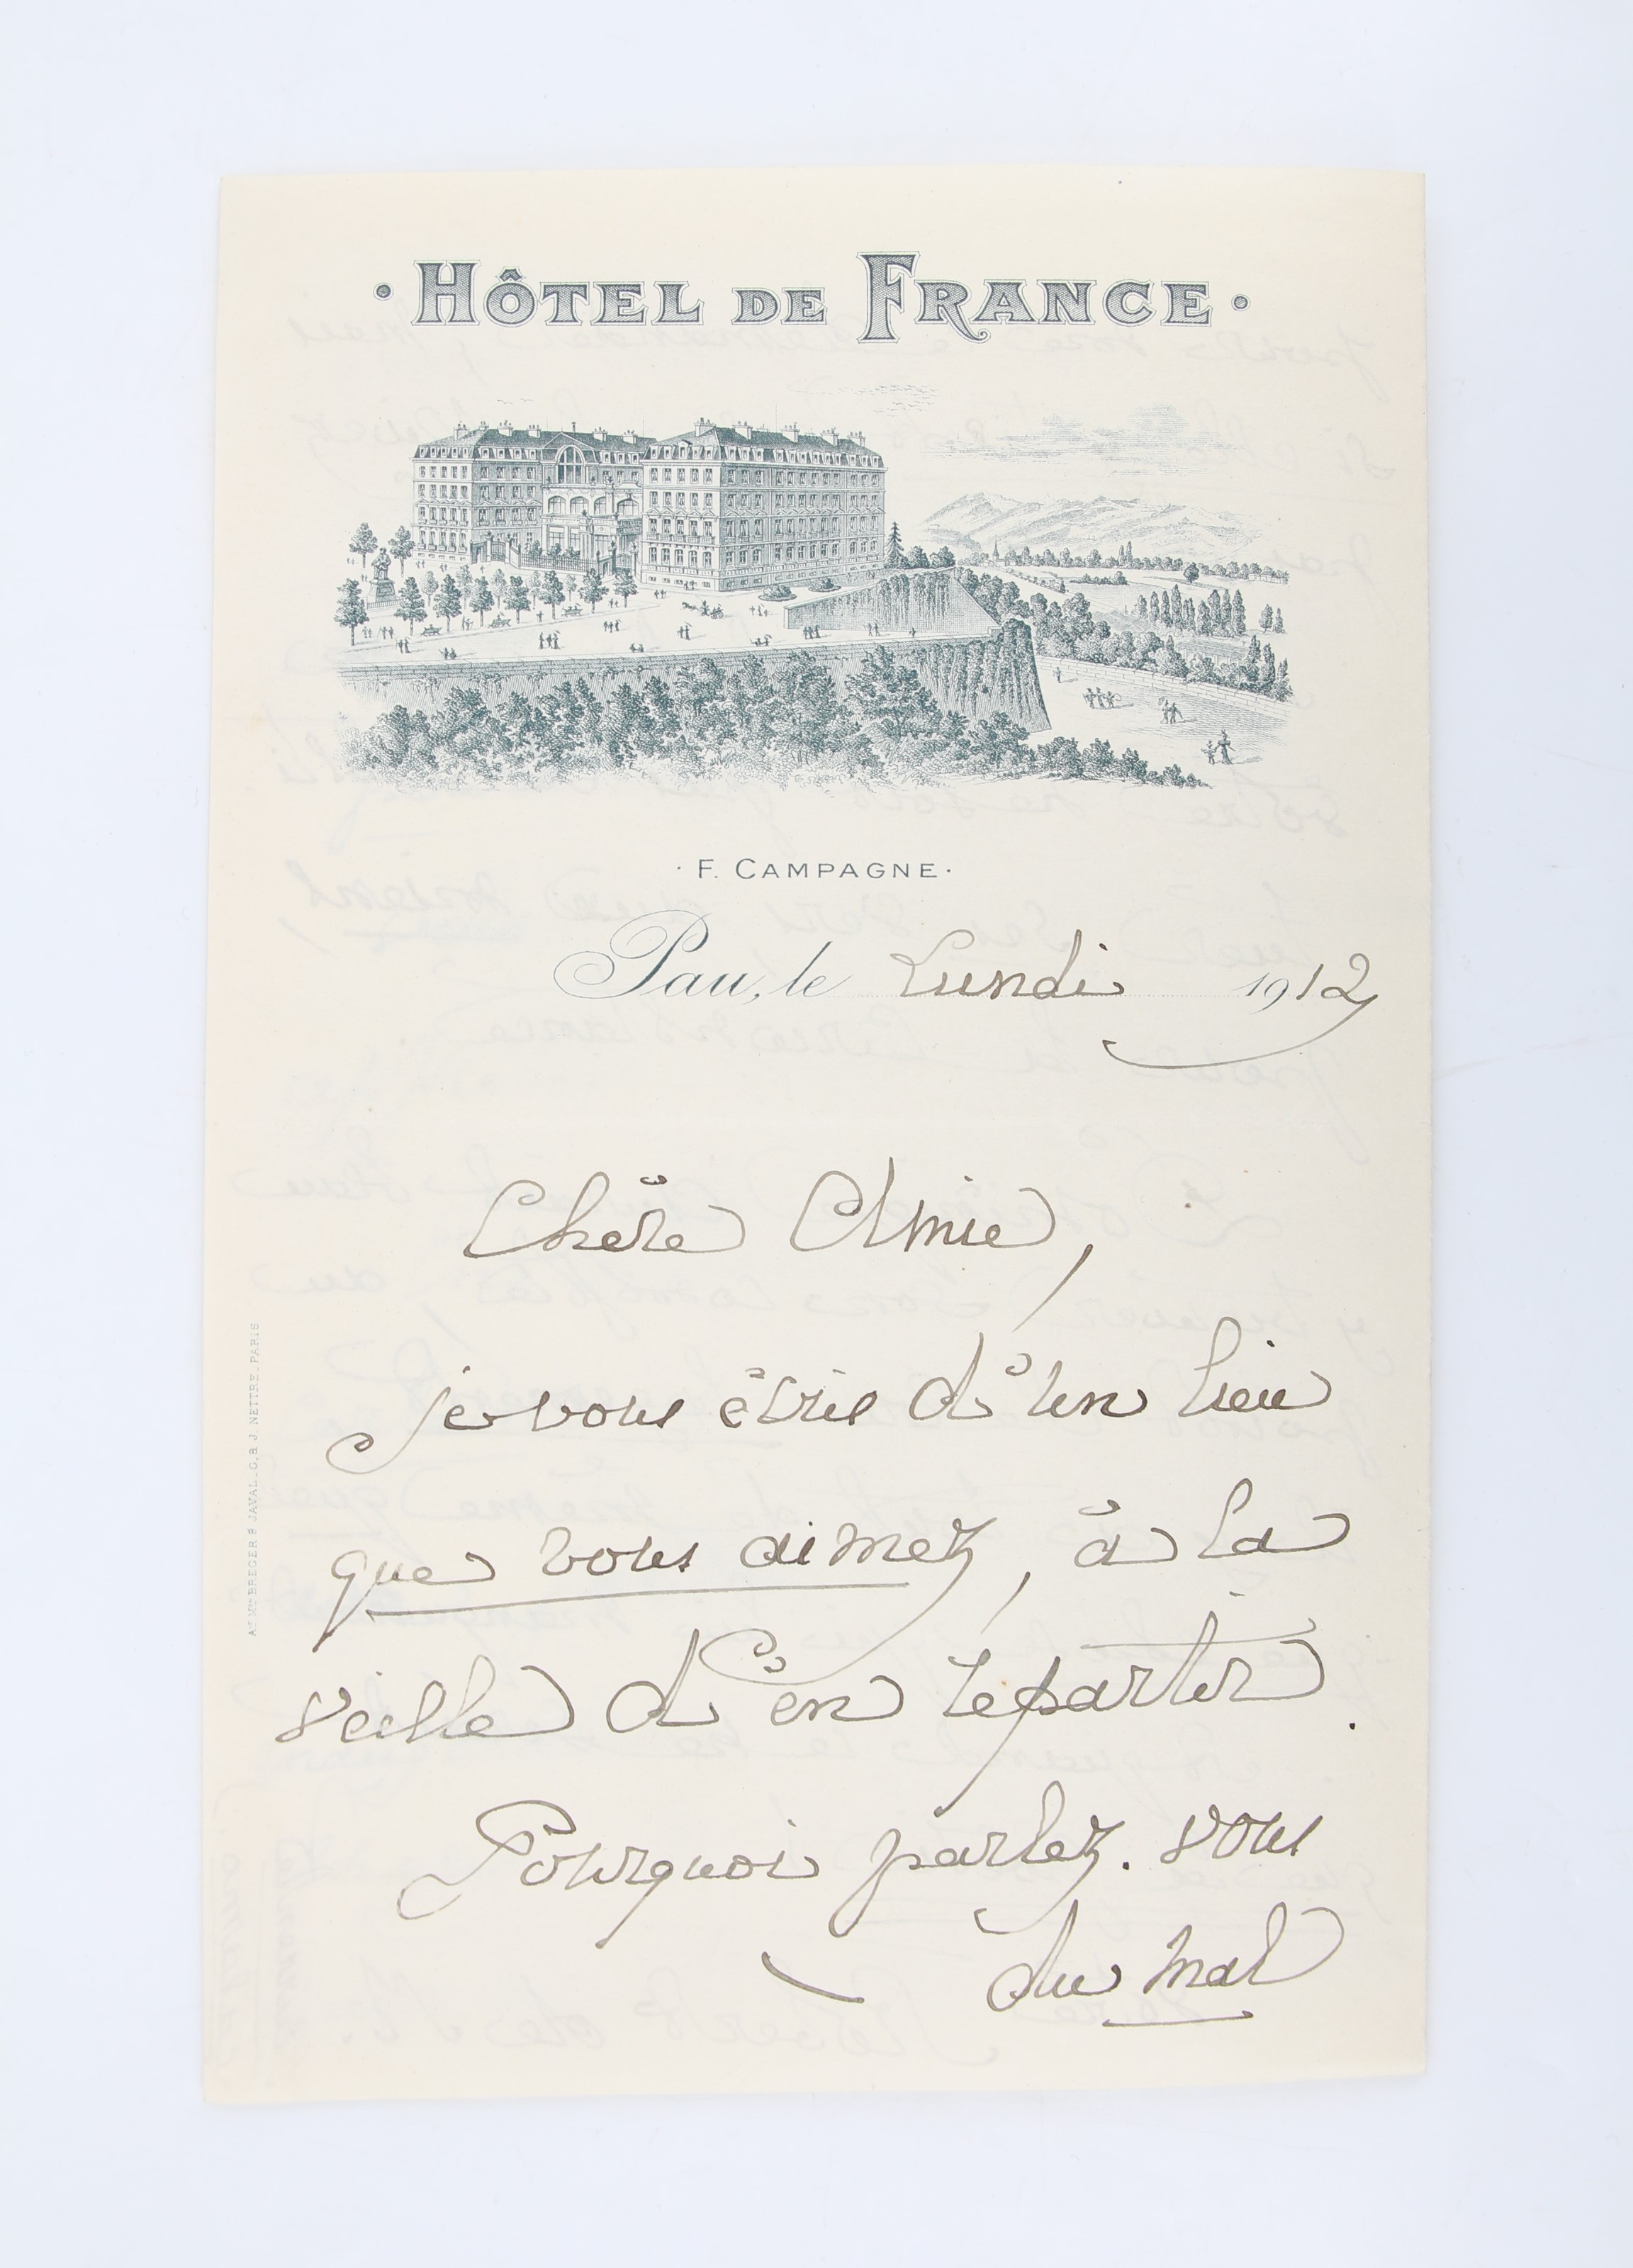 · HÔTEL DE FRANCE ·
· F. CAMPAGNE ·
Pau, le Lundi 1912
Chère Amie,
je vous écris d'un lieu
que vous aimez, à la
veille d'en repartir.
Pourquoi parlez-vous
du mal